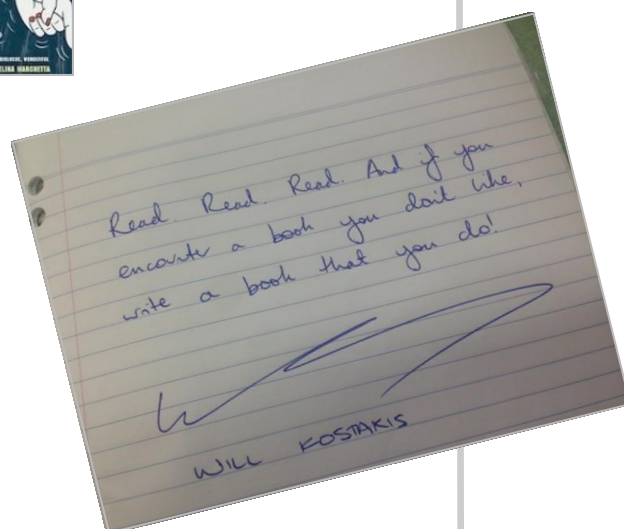 MELINA MARCHETTA
Read. Read. Read. And if you
encounter a book you don't like,
write a book that you do!
WILL KOSTAKIS